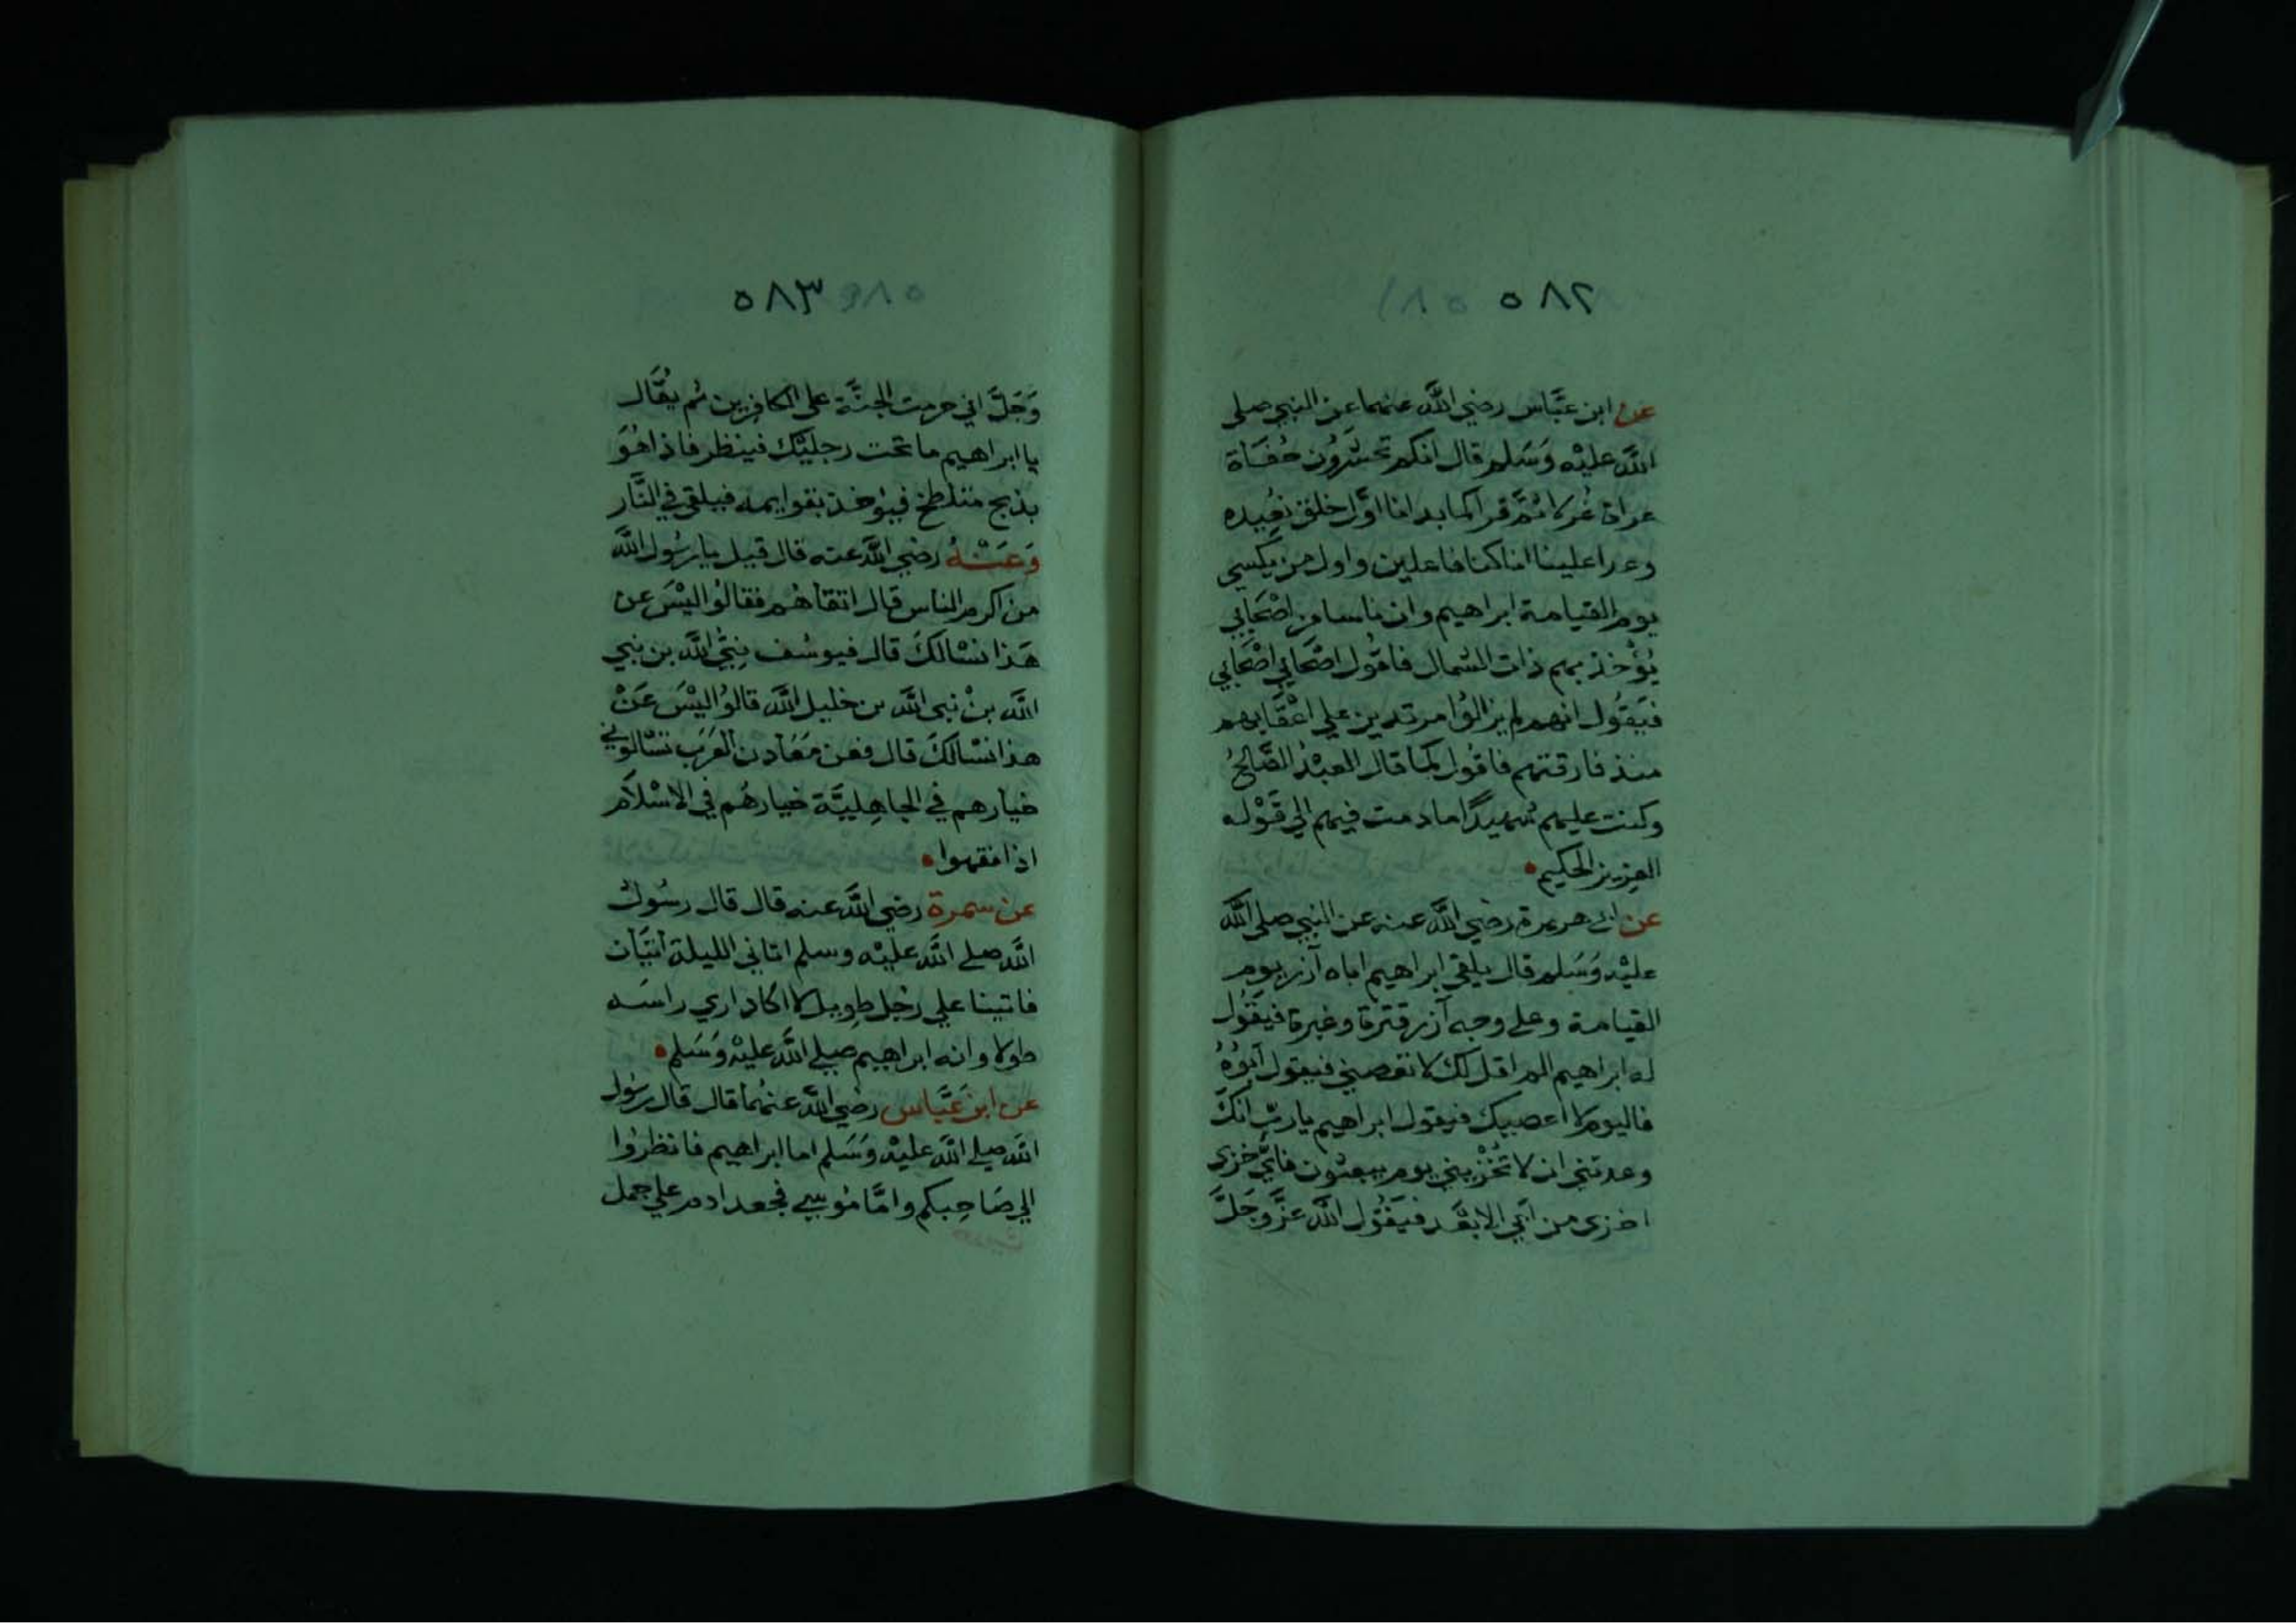 ٥٨٢
عن ابن عَبَّاس رضي اللَّه عنهما عن النبي صلي
اللَّه عليْه وَسَلم قال انكم تحشَرُون حُفَاة
عراة غُرلا ثمَّ قرا كما بدانا اوَّل خلق نعُيده
وعدا علينا انا كنا فاعلين واول من يكسي
يوم القيامة ابراهيم وان ناسا من اصْحَابي
يُؤْخذ بهم ذات الشمال فاقول اصْحَابي اصْحَابي
فيَقوُل انهم لم يزالوُا مرتدين علي اعْقابهم
منذ فارقتهم فاقوُل كما قال العبْدُ الصَّالحُ
وكنت عليهم شهيدًا ما دمت فيهم الي قَوْله
العزيز الحكيم
عن ابي هريرة رضي اللَّه عنه عن النبي صلي اللَّه
عليْه وَسَلم قال يلقي ابراهيم اباه آزر يوم
القيامة وعلي وجه آزر قترة وغبرة فيَقوُل
له ابراهيم الم اقل لك لا تعصني فيقول ابُوُهُ
فاليوم لا اعصيك فيقول ابراهيم يا ربّ انكَ
وعدتني ان لا تُخْزيني يوم يبعثون فايُّ خزي
اخزي من ابَي الابعَد فيَقوُل اللَّه عزَّ وجَلَّ
٥٨٣
وَجَلَّ اني حرمت الجنَّة علي الكافِرين ثم يقُال
يا ابراهيم ما تحت رجليْك فينظر فاذا هُوَ
بذبح متلطخ فيؤخذ بقوايمه فيلقي في النَّار
وَعَنْهُ رضي اللَّه عنه قال قيل يا رسُول اللَّه
من اكرم الناس قال اتقاهُم فقالوُا ليْسَ عن
هَذا نسْالكَ قال فيوسُف نبيُّ اللَّه بن نبي
اللَّه بنْ نبي اللَّه بن خليل اللَّه قالوُا ليْسَ عَنْ
هذا نسْالكَ قال فعن معَادن العَرَب تسْالوُني
خيارهم في الجاهِليَّة خيارهُم في الاسْلاَم
اذا فقهوا
عن سمرة رضي اللَّه عنه قال قال رسُول
اللَّه صلي اللَّه عليْه وسلم اتاني الليلة آتيَان
فاتينا علي رجُل طويل لا اكاد اري راسَه
طولا وانه ابراهيم صلي اللَّه عليْه وَسَلم
عن ابن عَبَّاس رضي اللَّه عنهُما قال قال رسُول
اللَّه صلي اللَّه عليْه وَسَلم اما ابراهيم فانظرُوا
الي صَاحِبكم وامَّا موُسي فجعد ادم علي جمل